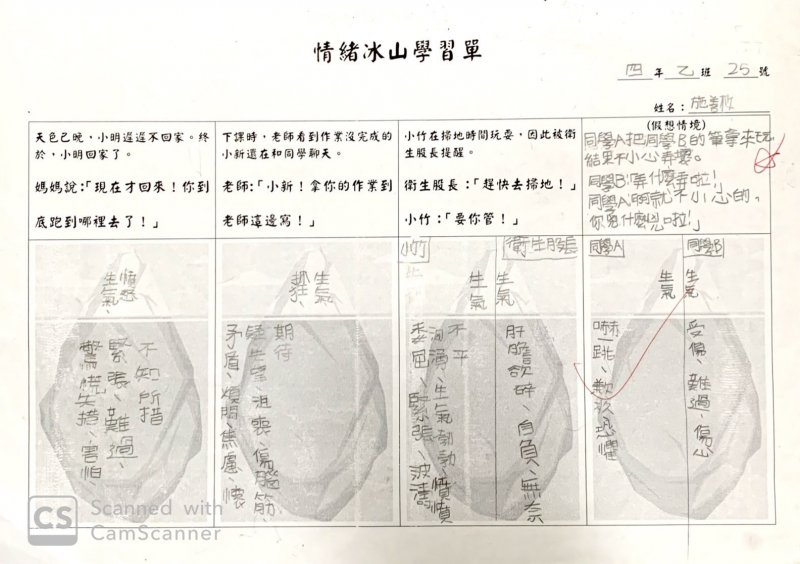 情緒冰山學習單
四年乙班25號
姓名：施善
天色已晚，小明遲遲不回家。終
於，小明回家了。
媽媽說：「現在才回來！你到
底跑到哪裡去了！」
下課時，老師看到作業沒完成的
小新還在和同學聊天。
老師：「小新！拿你的作業到
老師這邊寫！」
小竹在掃地時間玩耍，因此被衛
生股長提醒。
衛生股長：「趕快去掃地！」
小竹：「要你管！」
(假想情境)
同學A把同學B的筆拿來玩
結果不小心弄壞。
同學B「弄什麼弄啦！」
同學A「啊就不小心的，
你兇什麼兇啦！」
憤怒
生氣、
不知所措
緊張、難過、
驚慌失措、害怕、
生氣
抓狂、
期待
疑失望、沮喪、傷腦筋、
矛盾、煩悶、焦慮、懷
小竹
衛生股長
生氣
生氣
不平
洶湧、生氣勃勃、憤憤
委屈、緊張、波濤
肝膽欲碎、自負、無奈
同學A
同學B
生氣
生氣
嚇一跳、歉疚、恐懼
受傷、難過、傷心
CS Scanned with
CamScanner